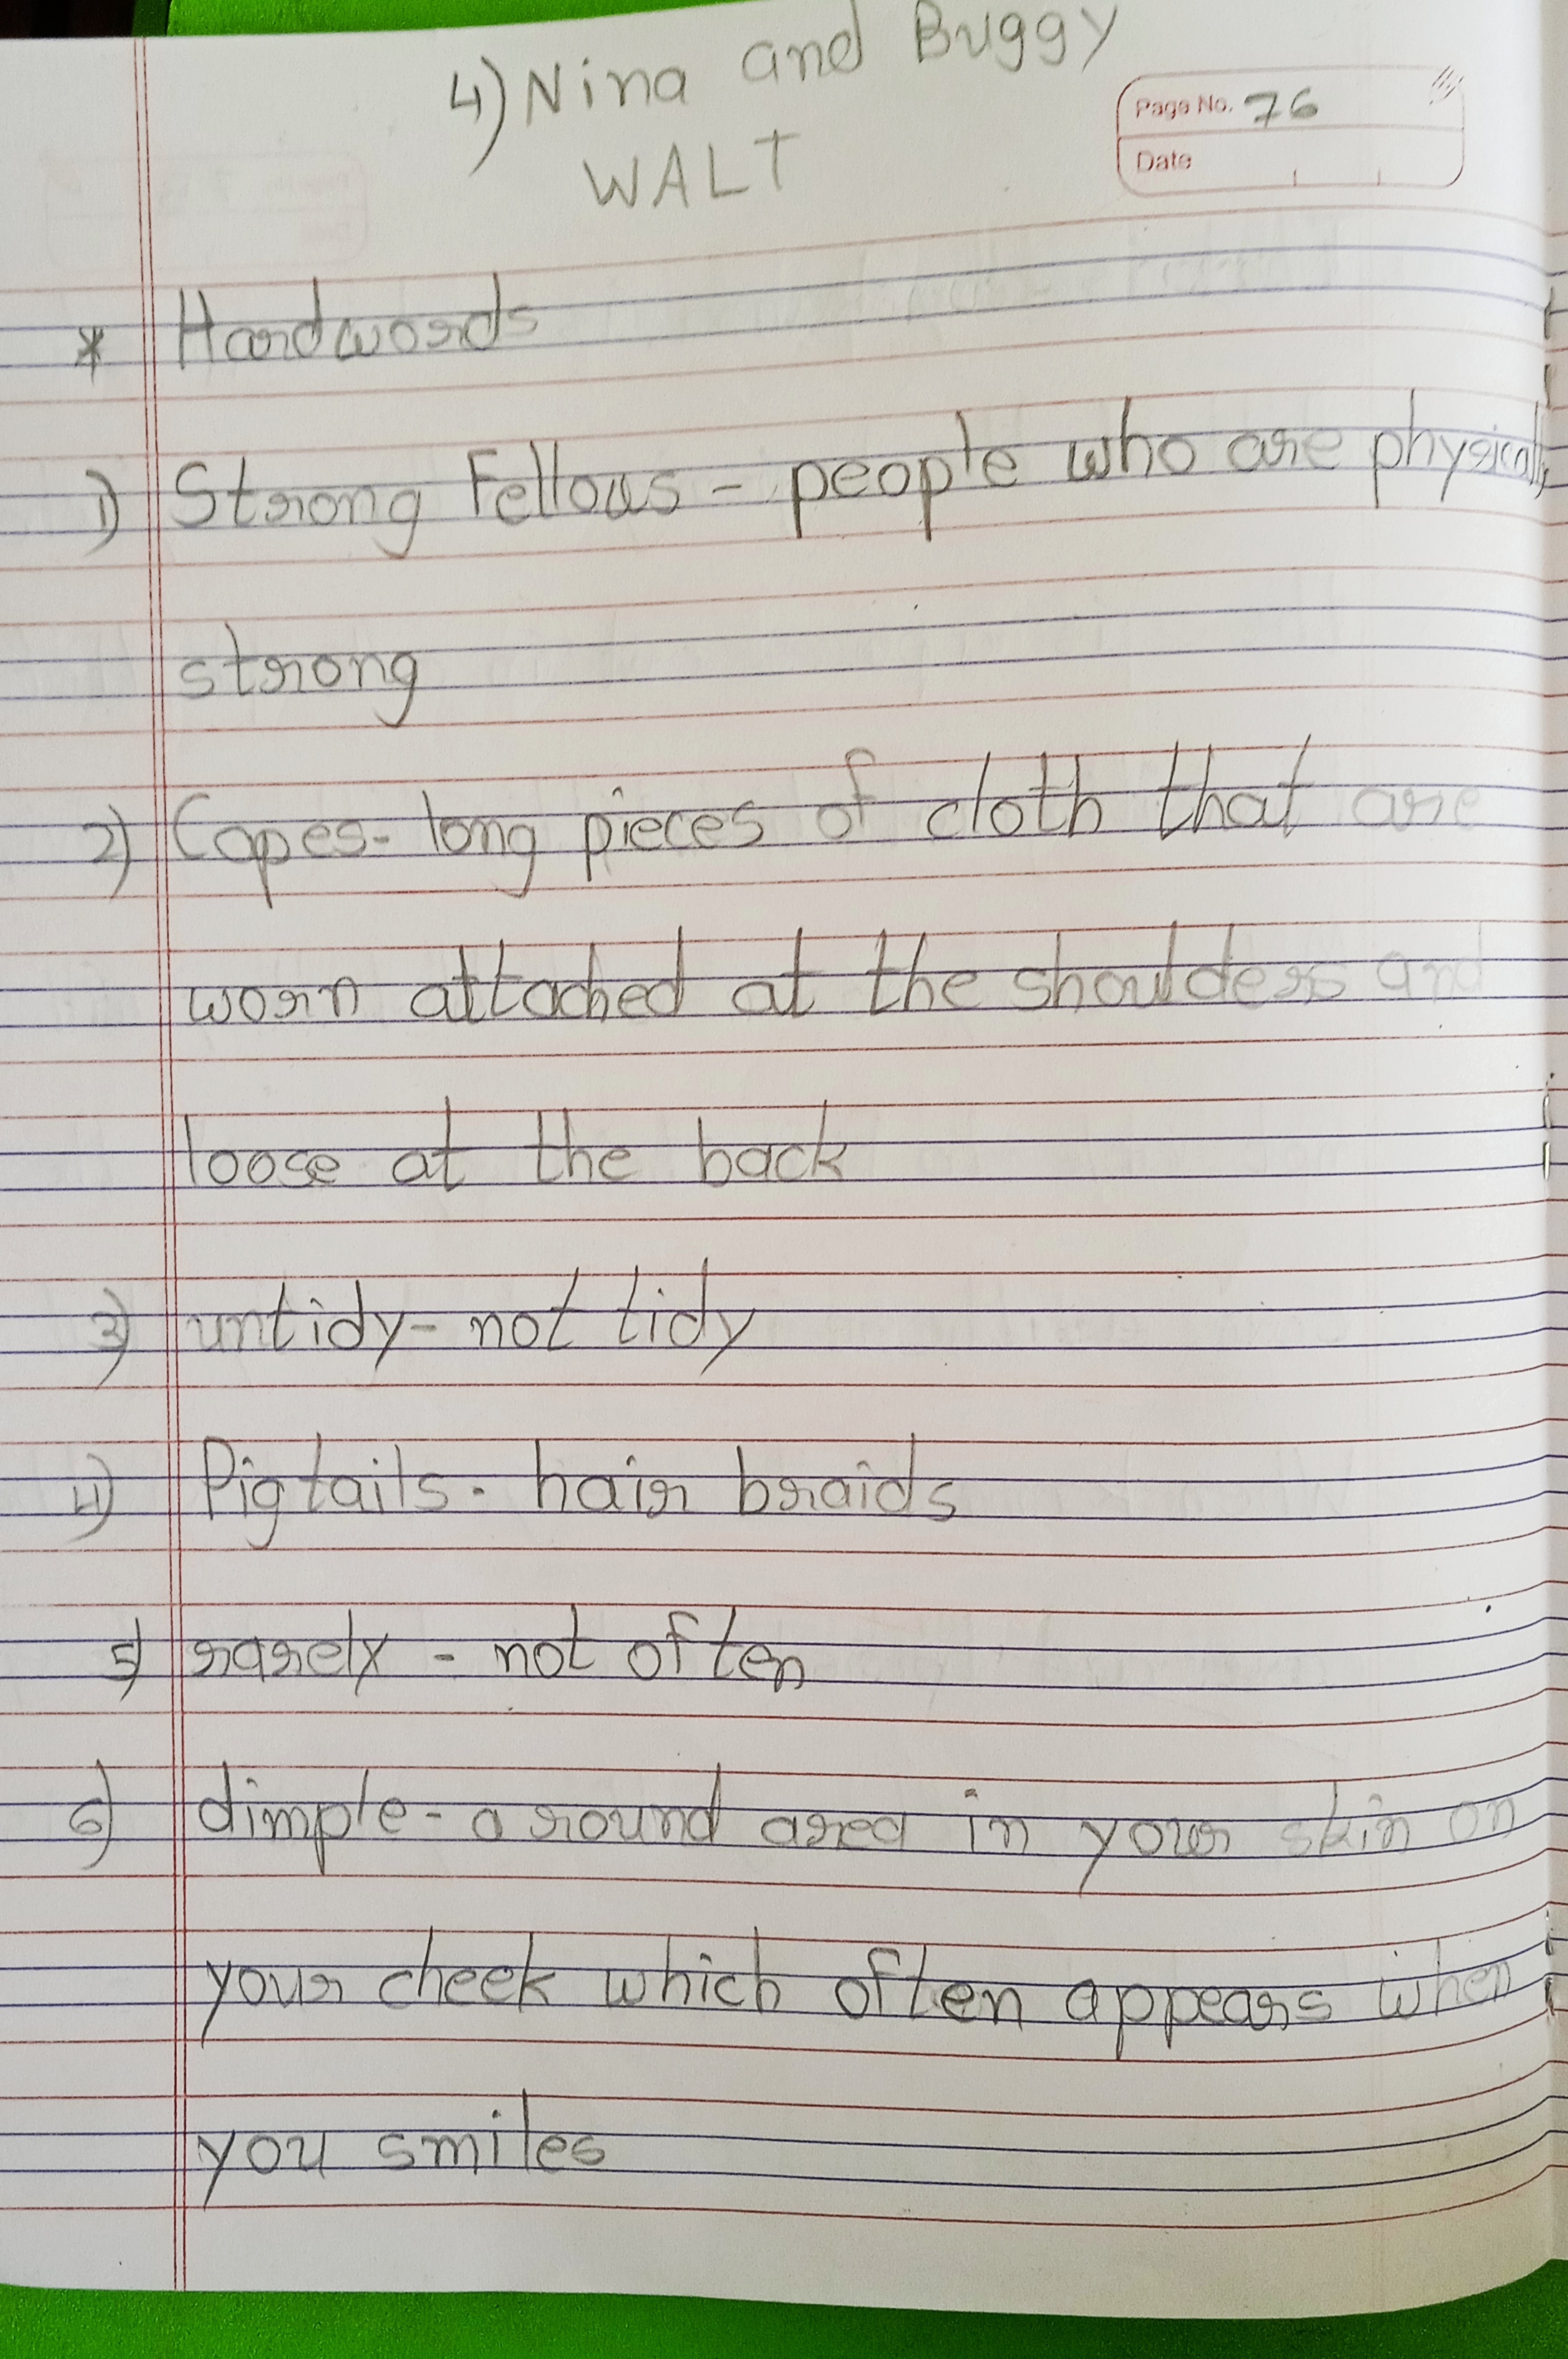 4) Nina and Buggy
WALT
Page No. 76
Date
* Hardwords
1) Strong Fellows - people who are physically
strong
2) Capes - long pieces of cloth that are
worn attached at the shoulders and
loose at the back
3) untidy - not tidy
4) Pigtails - hair braids
5) rarely - not often
6) dimple - a round area in your skin on
your cheek which often appears when
you smiles